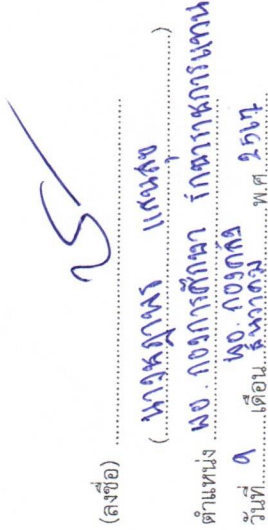 (ลงชื่อ)
(นางชฎาพร แสนสุข)
ตำแหน่ง ผอ. กองการศึกษา รักษาราชการแทน
ผอ. กองคลัง
วันที่ 9 เดือน ธันวาคม พ.ศ. 2567